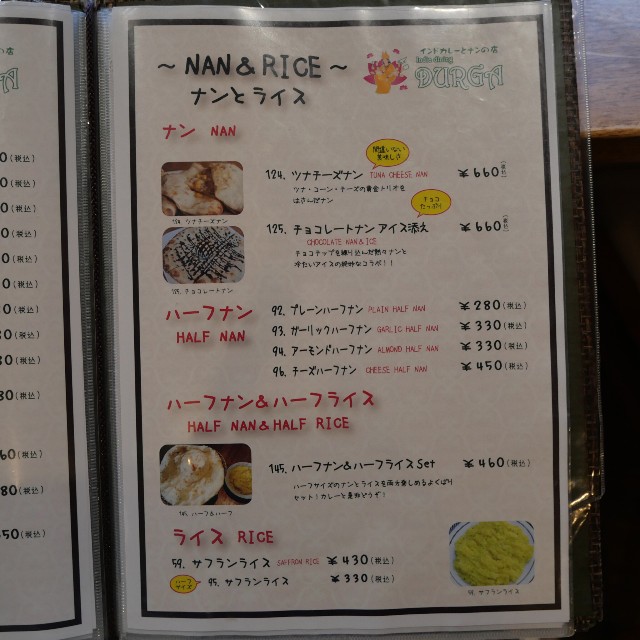 の店
GA
0(税込)
0(税込)
0(税込)
0(税込)
0(税込)
0(税込)
0(税込)
80(税込)
30(税込)
80(税込)
60(税込)
80(税込)
50(税込)
～ NAN & RICE ～
ナンとライス
インドカレーとナンの店
India dining
DURGA
ナン NAN
間違いない
美味しさ
124. ツナチーズナン TUNA CHEESE NAN ¥660(税込)
ツナ・コーン・チーズの黄金トリオを
はさんだナン
124. ツナチーズナン
チョコ
たっぷり
125. チョコレートナン アイス添え ¥660(税込)
CHOCOLATE NAN & ICE
チョコチップを練り込んだ熱々ナンと
冷たいアイスの絶妙なコラボ！！
125. チョコレートナン
ハーフナン
HALF NAN
92. プレーンハーフナン PLAIN HALF NAN ¥280(税込)
93. ガーリックハーフナン GARLIC HALF NAN ¥330(税込)
94. アーモンドハーフナン ALMOND HALF NAN ¥330(税込)
96. チーズハーフナン CHEESE HALF NAN ¥450(税込)
ハーフナン&ハーフライス
HALF NAN & HALF RICE
145. ハーフナン&ハーフライス Set ¥460(税込)
ハーフサイズのナンとライスを両方楽しめるよくばり
セット！カレーと是非どうぞ！
145. ハーフ&ハーフ
ライス RICE
59. サフランライス SAFFRON RICE ¥430(税込)
ハーフ
サイズ
95. サフランライス ¥330(税込)
59. サフランライス